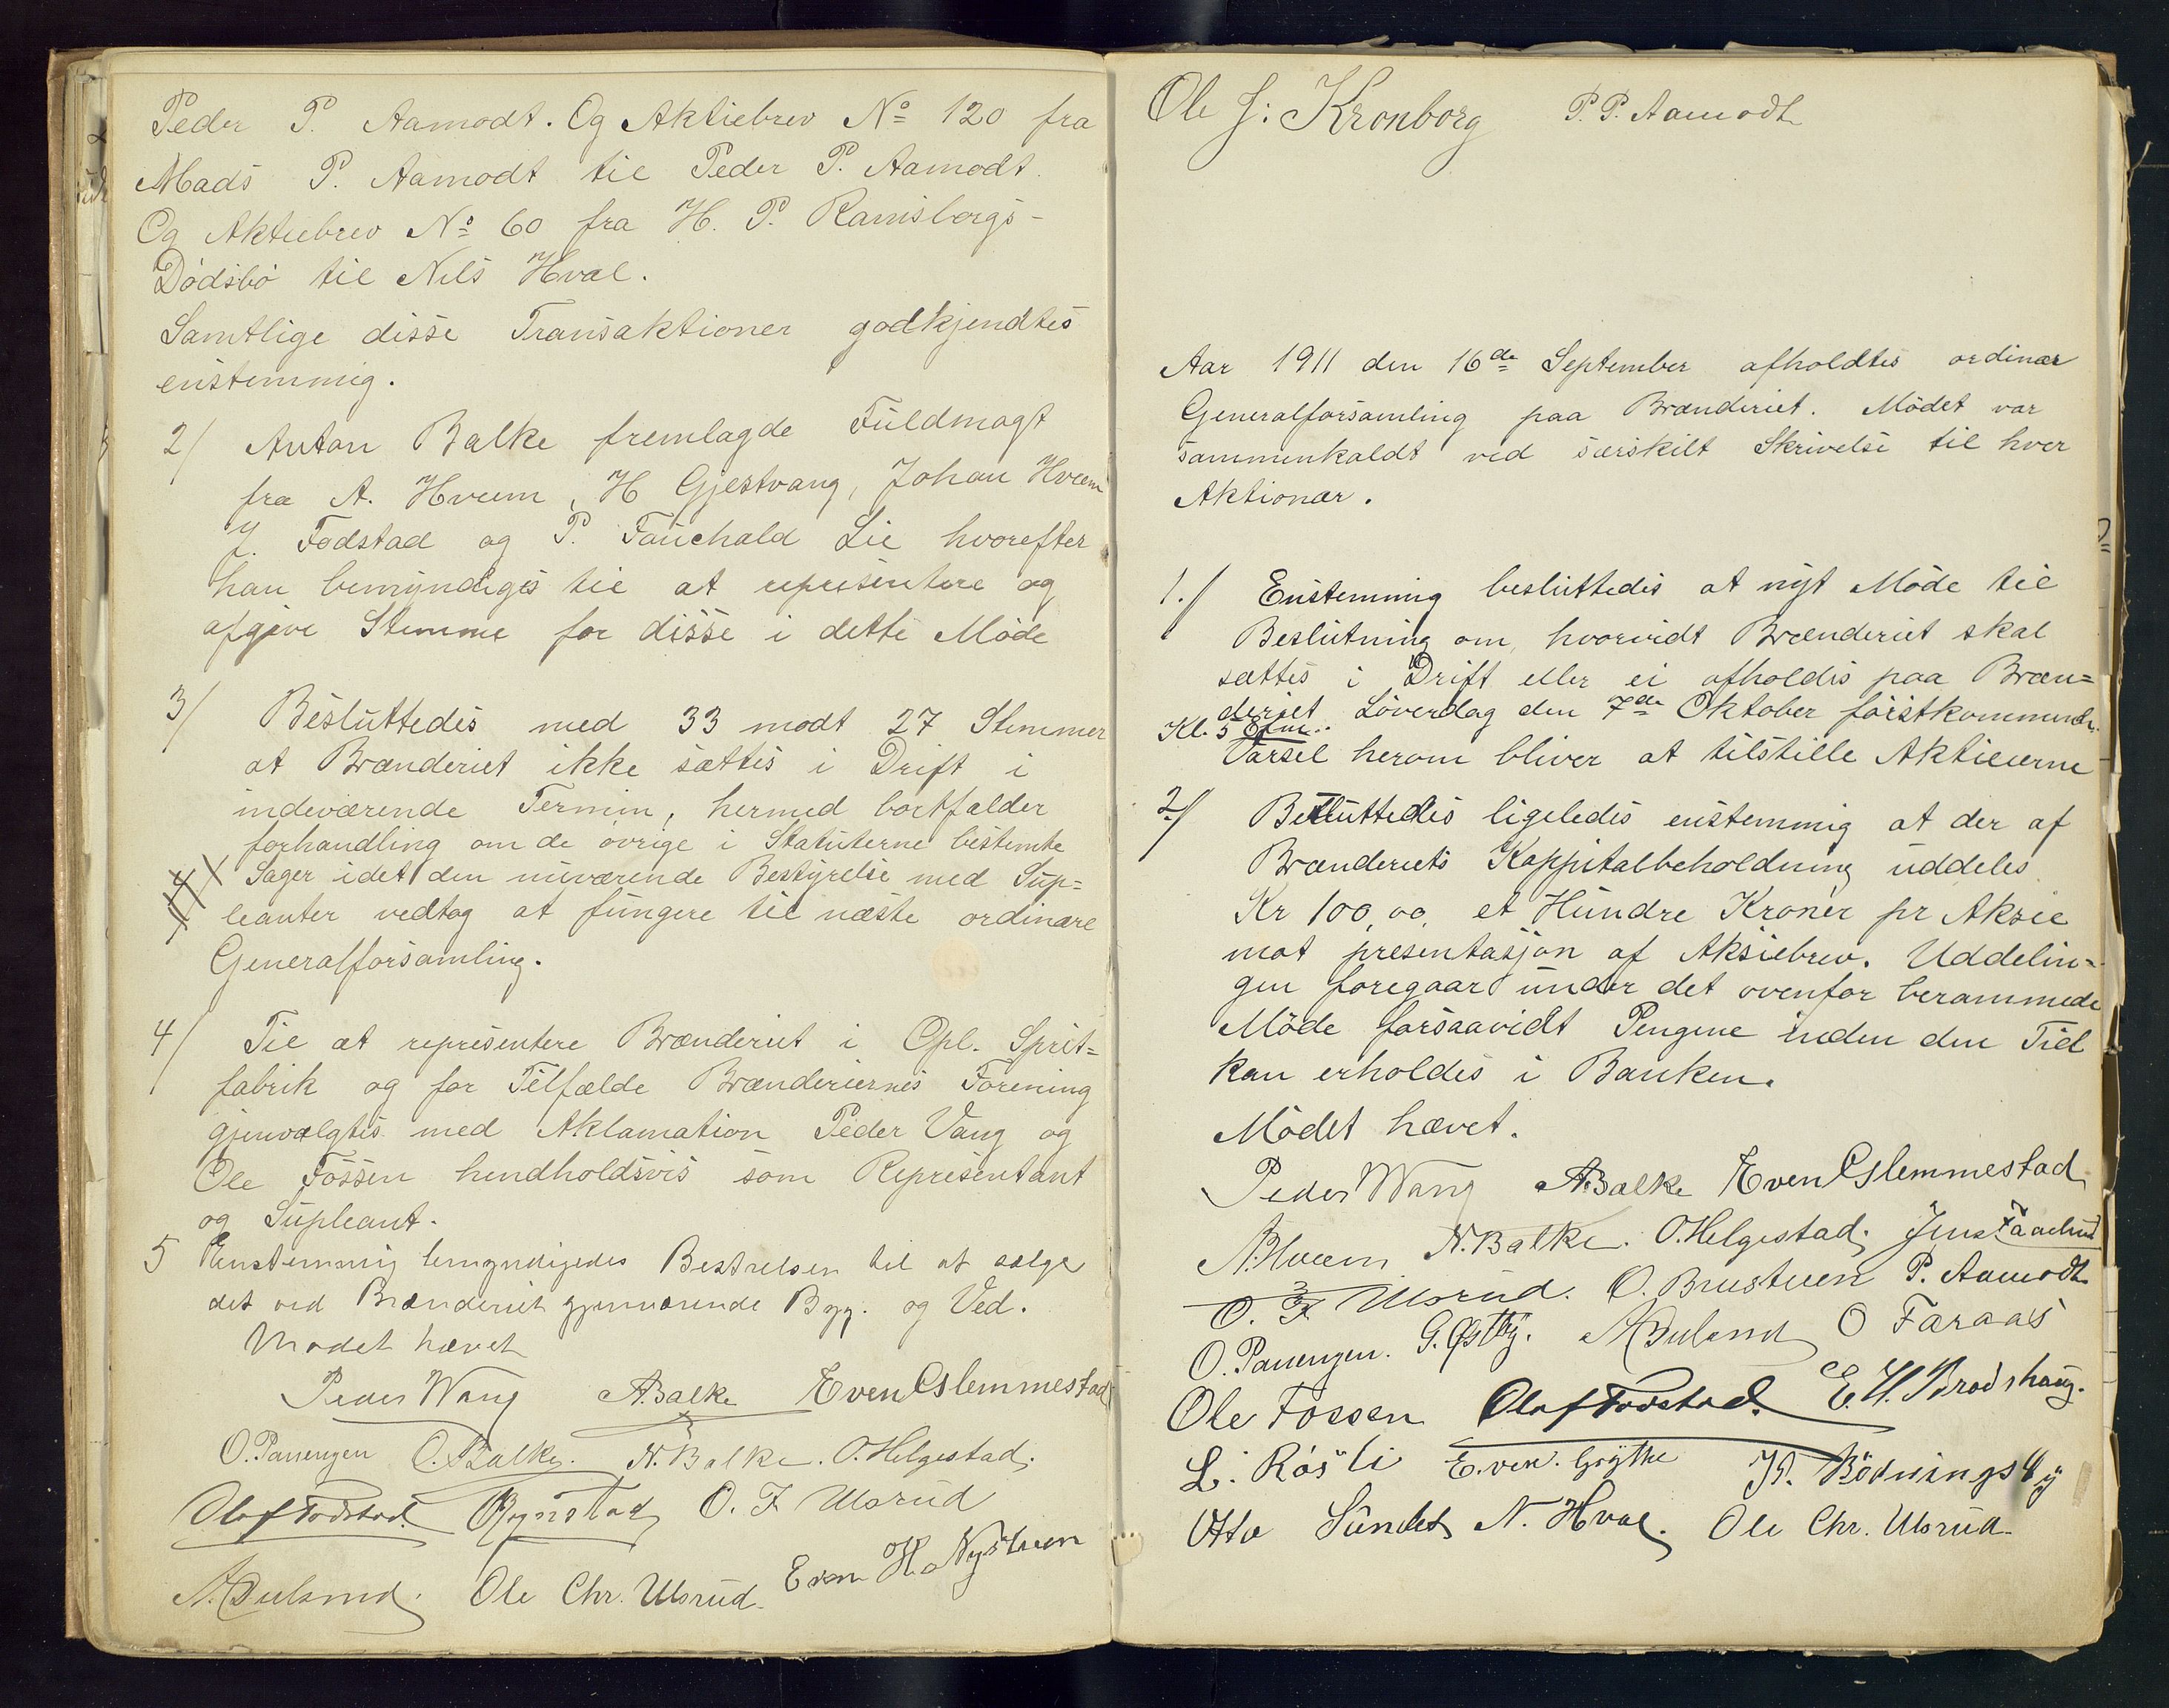 Peder P. Aamodt. Og Aktiebrev No 120 fra
Mads P. Aamodt til Peder P. Aamodt.
Og Aktiebrev No 60 fra H. P. Ramsborgs-
Dödsbö til Nils Hval.
Samtlige disse Transaktioner godkjendtes
enstemmig.
2/ Anton Balke fremlagde Fuldmagt
fra A. Hveem, H Gjestvang, Johan Hveem
J. Fodstad og P. Fauchald Lie hvorefter
han bemyndiges til at representere og
afgive Stemme for disse i dette Möde
3/ Besluttedes med 33 modt 27 Stemmer
at Brænderiet ikke sættes i Drift i
indeværende Termin, hermed bortfalder
forhandling om de övrige i Statuterne bestemte
Sager idet den nuværende Bestyrelse med Sup=
leanter vedtog at fungere til næste ordinære
Generalforsamling.
4/ Til at representere Brænderiet i Opl. Sprit=
fabrik og for Tilfælde Brænderiernes Forening
gjenvalgtes med Aklamation Peder Vang og
Ole Fossen hendholdsvis som Representant
og Supleant.
5 Enstemmig bemyndigedes Bestrelsen til at sælge
det ved Brænderiet gjenværende Byg. og Ved.
Mødet hævet
Peder Wang A. Balke Even Eslemmestad
O. Panengen O. Balke. N. Balke. O. Helgestad.
Olaf Fodstad. Rynstad O. F Ulsrud
Ole Chr. Ulsrud. Even H. Nystuen
Ole J: Kronborg P. P. Aamodt
Aar 1911 den 16de September afholdtes ordinær
Generalforsamling paa Brænderiet. Mödet var
sammenkaldt ved særskilt Skrivelse til hver
Aktionær.
1./ Enstemmig besluttedes at nyt Möde til
Beslutning om, hvorvidt Brænderiet skal
sættes i Drift eller ei afholdes paa Bræn=
deriet Löverdag den 7de Oktober förstkommende.
Kl. 5 Efm..
Varsel herom bliver at tilstille Aktieierne
2./ Besluttedes ligeledes enstemmig at der af
Brænderiets Kappitalbeholdning uddeles
Kr 100,00, et Hundre Kroner pr Aksie
mot presentasjon af Aksiebrev. Uddelin=
gen foregaar under det ovenfor berammede
Möde forsaavidt Pengene inden den Tid
kan erholdes i Banken.
Mödet hævet.
Peder Wang A. Balke Even Eslemmestad
A. Hveem N. Balke. O. Helgestad. Jens
O. F Ulsrud. O. Brustuen P. Aamodt
O. Panengen. G. Østby. O Faraas
Ole Fossen Olaf Fodstad. E. H. Brodshaug.
L. Rösli Even. Grythe Bödningsby
Otto Sundet N. Hval. Ole Chr. Ulsrud.